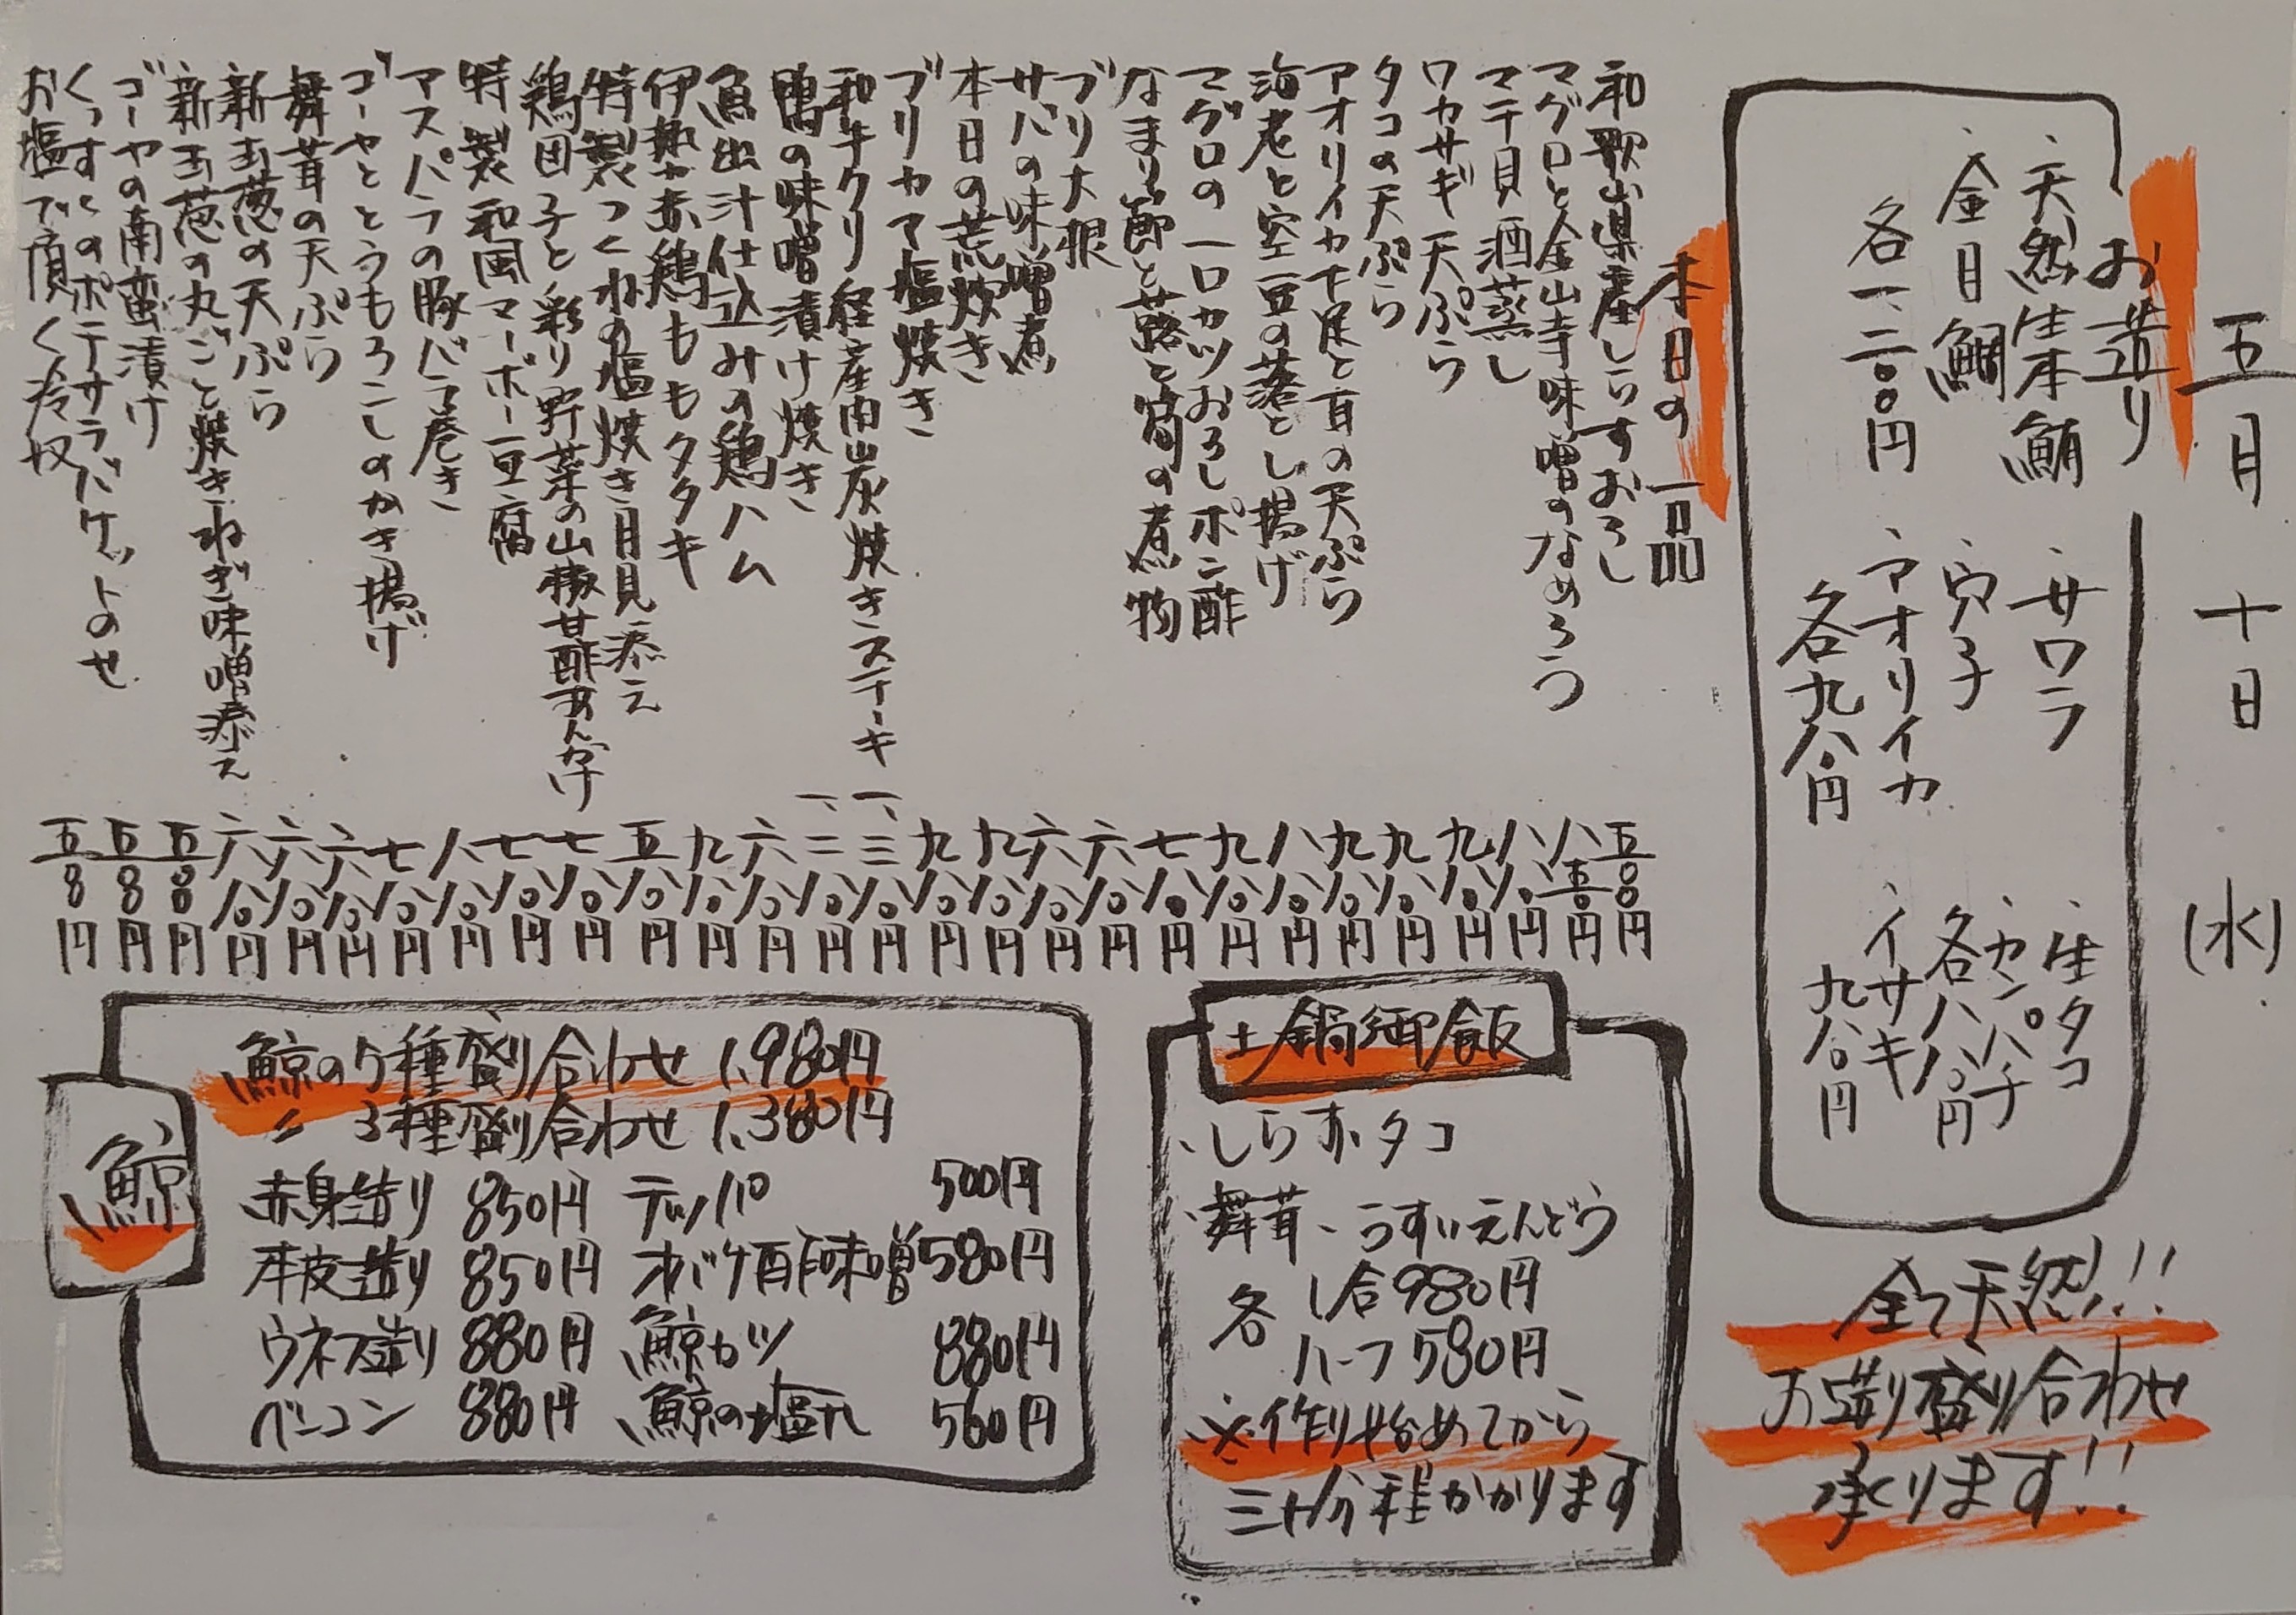 五月十日(水)
お造り
・天然生本鮪
・金目鯛
各一、二〇〇円
・サワラ
・穴子
・アオリイカ
各九八〇円
・生タコ
・カンパチ
各八八〇円
・イサキ
九八〇円
全て天然!!
お造り盛り合わせ
承ります!!
本日の一品
和歌山県産しらすおろし 五〇〇円
マグロと金山寺味噌のなめろう 八五〇円
マテ貝酒蒸し 八八〇円
ワカサギ天ぷら 九八〇円
タコの天ぷら 九八〇円
アオリイカ下足と耳の天ぷら 九八〇円
海老と空豆の落とし揚げ 八八〇円
マグロの一口カツおろしポン酢 九八〇円
なまり節と蕗と筍の煮物 七八〇円
ブリ大根 六八〇円
サバの味噌煮 六八〇円
本日の荒炊き 九八〇円
ブリカマ塩焼き 九八〇円
和牛クリ 経産肉炭焼きステーキ 一、三八〇円
鴨の味噌漬け焼き 一、二八〇円
魚出汁仕込みの鶏ハム 六八〇円
伊勢赤鶏ももタタキ 九八〇円
特製つくねの塩焼き月見添え 五八〇円
鶏団子と彩り野菜の山椒甘酢あんかけ 七八〇円
特製和風マーボー豆腐 七八〇円
アスパラの豚バラ巻き 八八〇円
ゴーヤととうもろこしのかき揚げ 七八〇円
舞茸の天ぷら 六八〇円
新玉葱の天ぷら 六八〇円
新玉葱の丸ごと焼きねぎ味噌添え 六八〇円
ゴーヤの南蛮漬け 五八〇円
くんすとのポテサラバケットのせ 五八〇円
お塩で頂く冷奴 五八〇円
土鍋御飯
・しらす・タコ
・舞茸・うすいえんどう
各 1合980円
ハーフ580円
※作り始めてから
三十分程かかります
鯨
鯨の5種盛り合わせ 1,980円
〃 3種盛り合わせ 1,380円
赤身造り 850円 テッパ 500円
本皮造り 850円 オバケ酢味噌 580円
ウネス造り 880円 鯨カツ 880円
ベーコン 880円 鯨の塩タレ 560円